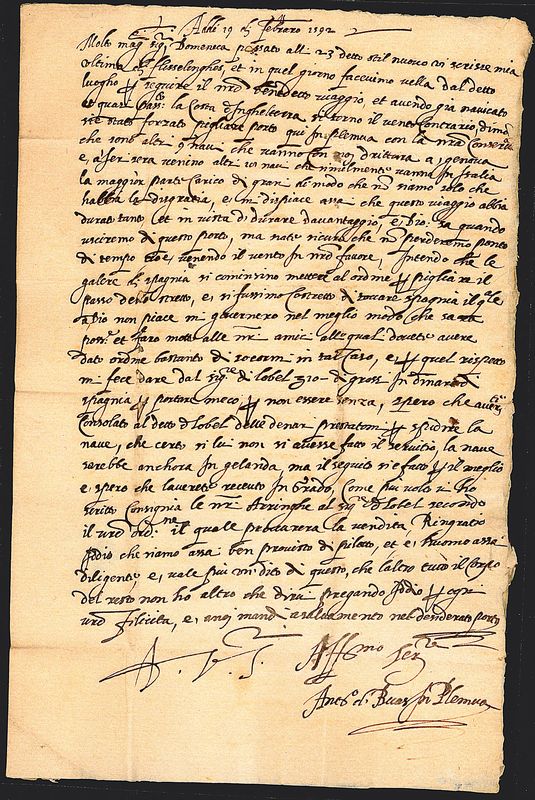 Addi 19 di febraro 1592
Molto mag.co sig.r Domenica passato alli 23 detto stil nuovo vi scrisse mia
ultima di flesselenghes, et in quel giorno facevimo vella dal detto
luogho p seguire il nro benedetto viaggio, et avendo gia navicato
et quasi pass.o la Costa d'Inghelterra si torno il vento Contrario, di modo
sie stato forzato pigliare porto qui in plemua con la nra Conserva
che sono altri 9 navi che vanno con noi drittura a genova
e, a ser sera venino altri 10 navi che similmente vanno in Italia
la maggior parte Carico di grani di modo che non siamo soli che
habbia la disgratia, e mi dispiace assai che questo viaggio abbia
durato tanto et in vista di durare davantaggio, e, Dio sa quando
usciremo di questo porto, ma state sicuro che non perderemo ponto
di tempo e, venendo il vento in nro favore, Intendo che le
galere di spagnia si cominsino mettere al ordine p pigliare il
passo dello stretto, e, si fussimo Costretto di toccare spagnia il q.le
a Dio non piace mi governero nel meglio modo che sara
poss. et faro motto alli nri amici alli quali dovete avere
dato ordine bastante di socorrermi in tal Caso, e p quel rispetto
mi fece dare dal sig.re di lobel 310 di grossi in dinari di
spagnia p portare meco p non essere senza, spero che averete
Consolato al detto di lobel delle denari prestatomi p spidire la
nave, che certo si lui non si avesse fatto il servitio, la nave
serebbe anchora in gelanda, ma il seguito si e fatto p il meglio
e, spero che laverete receuto in Grado, Come piu volte vi ho
scritto Consignia le nre Arringhe al sig.re di lobel secondo
il vro ord.ne il quale procurera la vendita, Ringratio
Iddio che siamo assai ben provisto di piloto, et e, huomo assai
diligente, e, vale piu un dito di questo, che laltro tutto il Corpo
del resto non ho altro che dirvi pregando Iddio p ogni
vra filicita, e, a noi mandi a salvamento nel desiderato porto
A. V. S. Aff.mo ser.re
Ant.o di Buas in Plemua